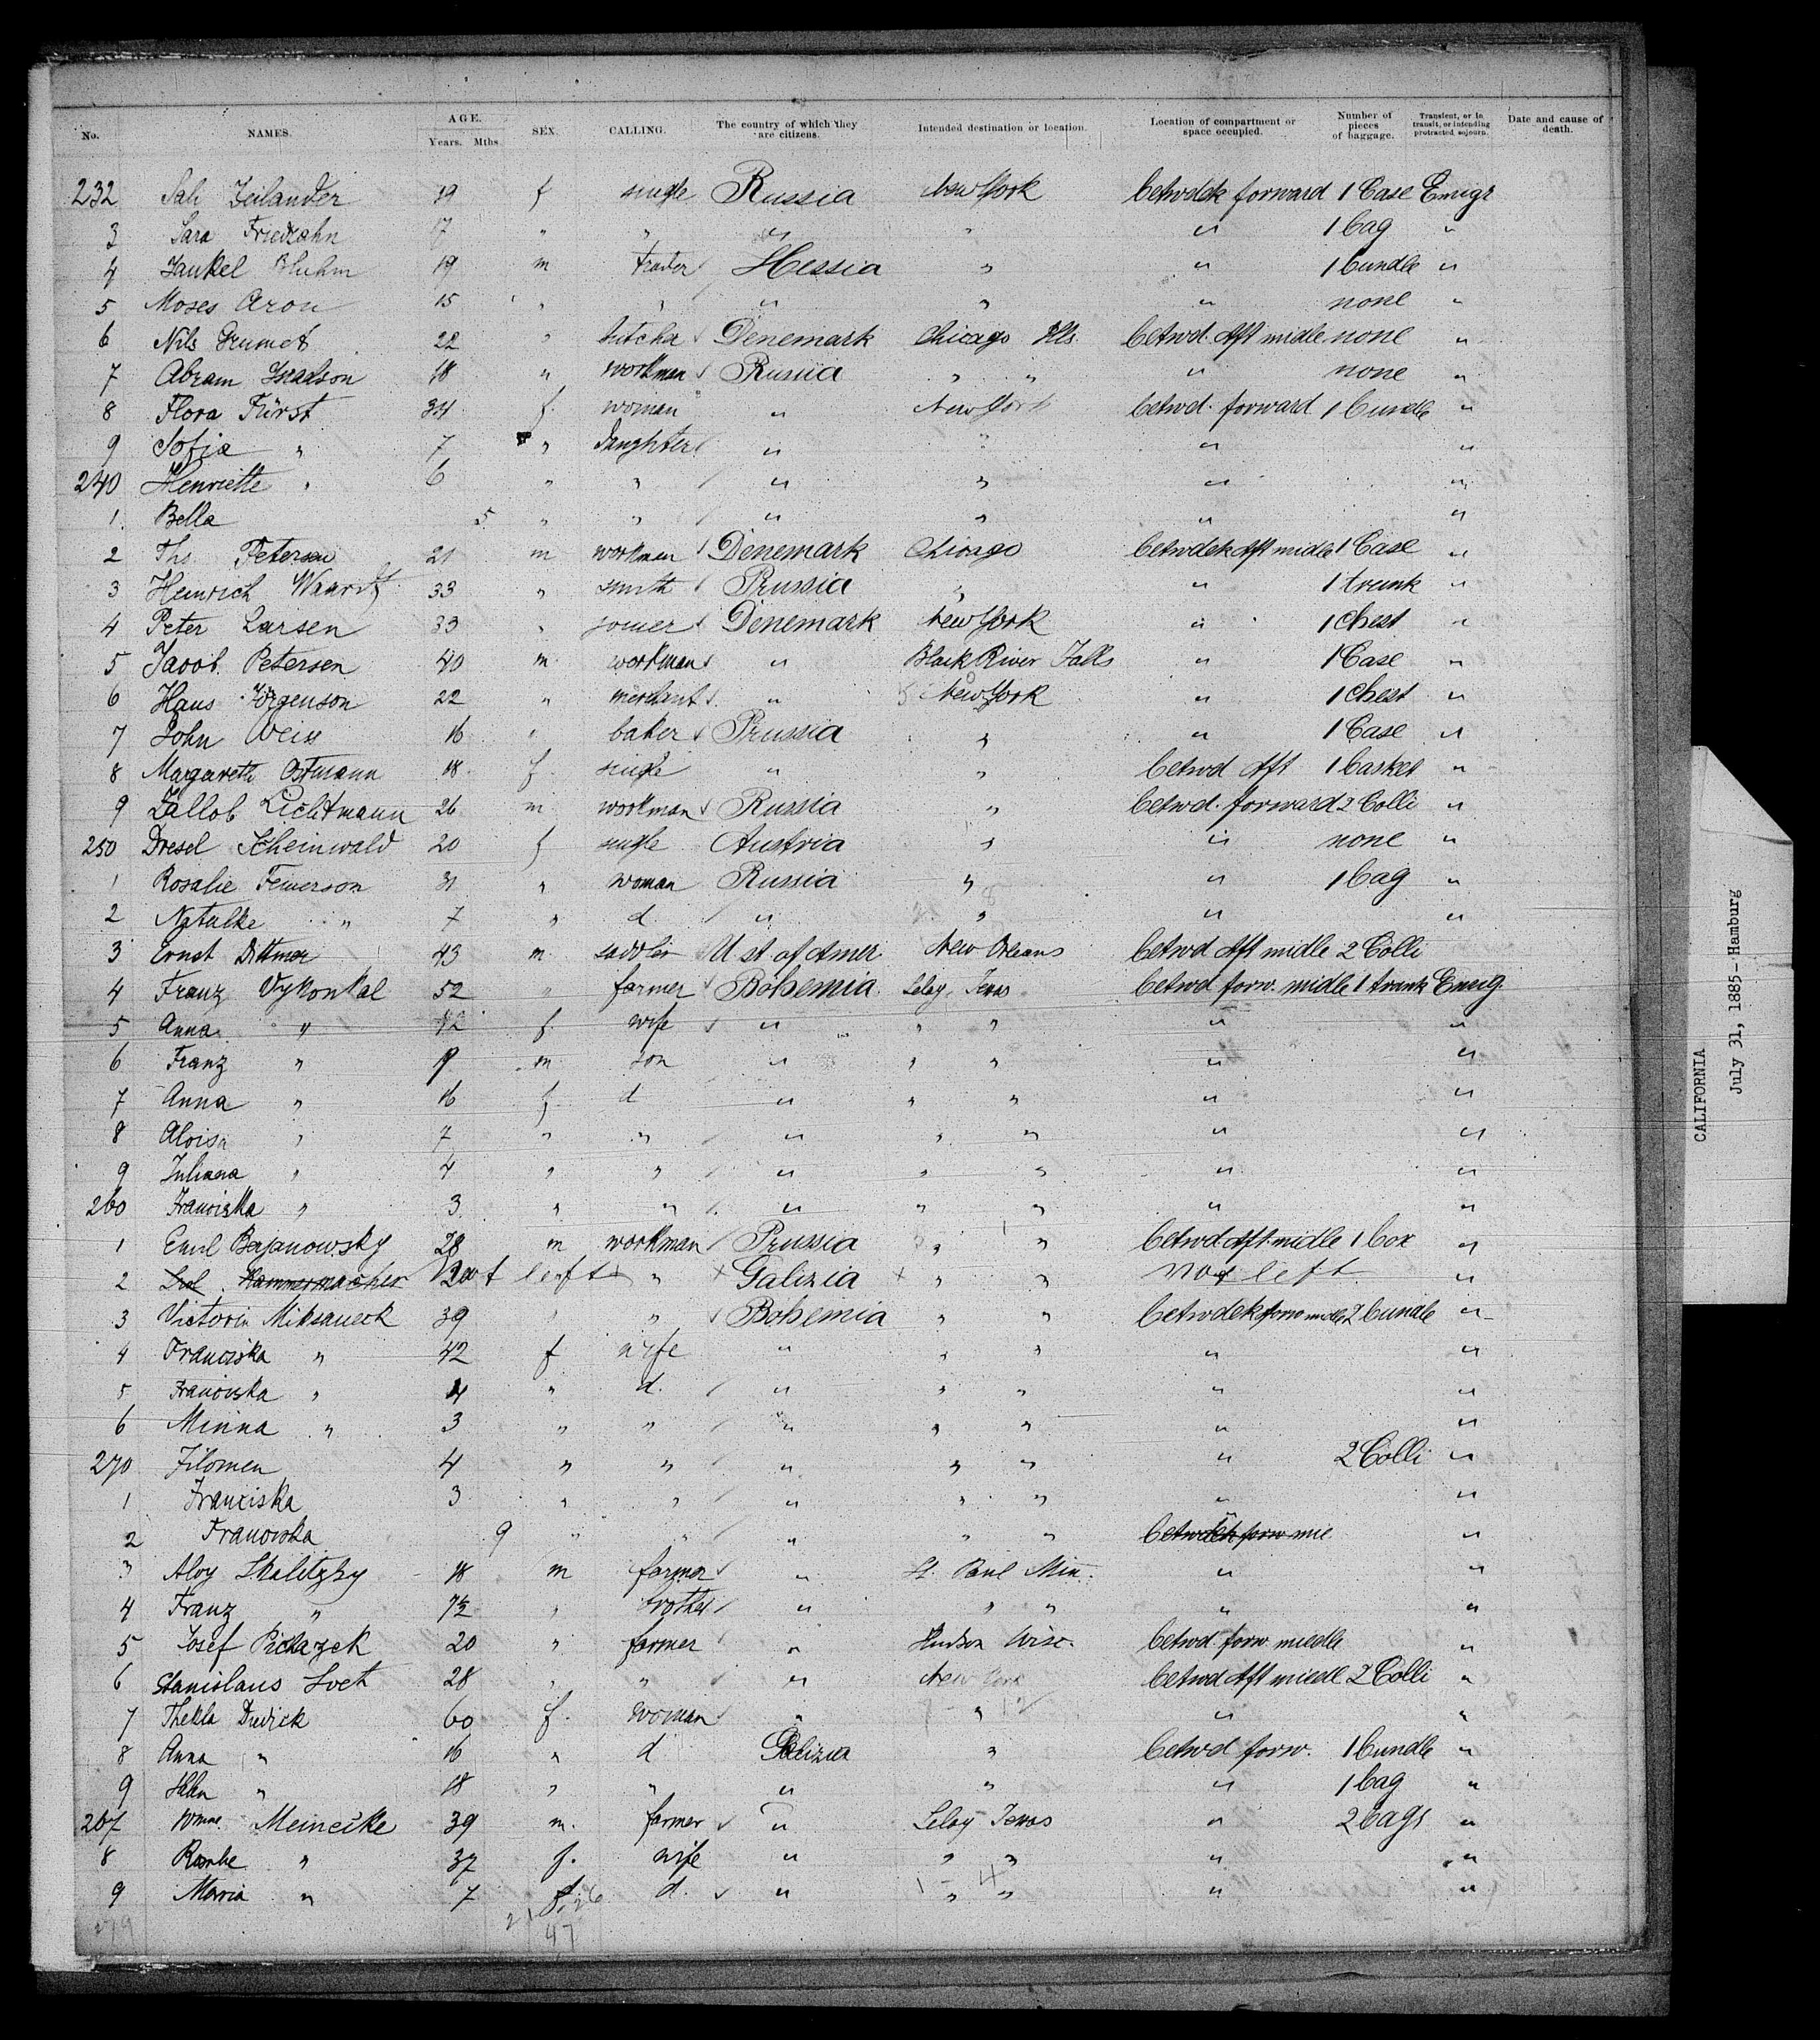 No. NAMES. AGE. Years. Mths. SEX. CALLING. The country of which they are citizens. Intended destination or location. Location of compartment or space occupied. Number of pieces of baggage. Transient, or in transit, or intending protracted sojourn. Date and cause of death.
232 Sali Zeilander 19 f single Russia New York betwdek forward 1 Case Emigr
3 Sara Friedzahn 17 " " " " " 1 bag "
4 Jankel Bluhm 19 m trader Hessia " " 1 bundle "
5 Moses Aron 15 " " " " " none "
6 Nils 22 " Denemark Chicago Ills. betwd. Aft midle none "
7 Abram 18 " workman Russia " " " none "
8 Flora Fürst 34 f. woman " New York betwd. forward 1 bundle "
9 Sofia " 7 " daughter " " " "
240 Henriette " 6 " " " " " "
1 Bella 5 " " " " " "
2 Ths Petersen 21 m workman Denemark Chicago betwdek Aft midle 1 Case "
3 Heinrich 33 " smith Prussia " " 1 trunk "
4 Peter Larsen 33 " joiner Denemark New York " 1 Chest "
5 Jacob Petersen 40 m workman " Black River Falls " 1 Case "
6 Hans Jörgenson 22 " merchant " New York " 1 Chest "
7 John Weiss 16 " baker Prussia " " 1 Case "
8 Margareth Ostmann 18 f. single " " betwd Aft 1 basket "
9 Lichtmann 26 m workman Russia " betwd. forward 2 Colli "
250 Dresel Scheinwald 20 f single Austria " " none "
1 Rosalie 31 " woman Russia " " 1 bag "
2 Natalke " 7 " d " " " "
3 Ernst Dittmer 43 m saddler U st. of Amer New Orleans betwd Aft midle 2 Colli
4 Franz Vykonkal 52 " farmer Bohemia Leloy Texas betwd forw. midle 1 trunk Emig.
5 Anna " 42 f. wife " " " " "
6 Franz " 9 m son " " " " "
7 Anna " 16 f. d " " " " "
8 Aloisa " 7 " " " " " " "
9 Juliana " 4 " " " " " " "
260 Franziska " 3 " " " " " " "
1 Emil Bajanowsky 28 m workman Prussia " " betwd. Aft midle 1 box "
2 Hammermacher Not left " Galizia " " not left "
3 Victorin Miksaneck 39 " " Bohemia " " betwdek forw midle 2 bundle "
4 Franciska " 42 f wife " " " " "
5 Franciska " 4 " d. " " " " "
6 Minna " 3 " " " " " " "
270 Filomen 4 " " " " " " 2 Colli "
1 Franziska 3 " " " " " " "
2 Franciska 9 " " " " " betwdek forw mie "
3 Aloy Skalitzky 18 m farmer " St. Paul Min. " "
4 Franz " " brother " " " " "
5 Josef 20 " farmer " Hudson Wisc. betwd. forw. middle "
6 Stanislaus Svet 28 " " " New York betwd Aft middle 2 Colli "
7 Thekla Dudick 60 f. woman " " " "
8 Anna " 16 " d Galizia " betwd forw. 1 bundle "
9 " 18 " " " " " 1 bag "
267 Meinecke 39 m. farmer " Leloy Texas " 2 bags "
8 " 37 f. wife " " " " "
9 Maria " 7 f. d. " " " " "
279 21 26
47
CALIFORNIA
July 31, 1885-Hamburg